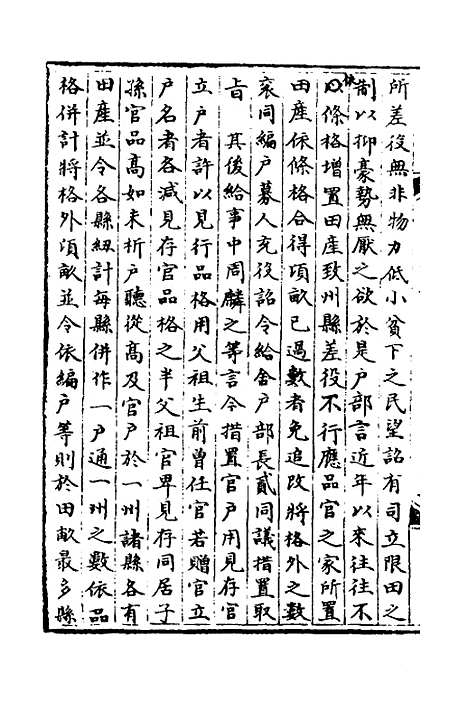 所差役無非物力低小貧下之民望詔有司立限田之
制以抑豪勢無厭之欲於是戶部言近年以來往往不
依條格增置田產致州縣差役不行應品官之家所置
田產依條格合得頃畝已過數者免追改將格外之數
衮同編戶募人充役詔令給舍戶部長貳同議措置取
旨　其後給事中周麟之等言今措置官戶用見存官
立戶者許以見行品格用父祖生前曾任官若贈官立
戶名者各減見存官品格之半父祖官卑見存同居子
孫官品高如未析戶聽從高及官戶於一州諸縣各有
田產並令各縣紐計每縣併作一戶通一州之數依品
格併計將格外頃畝並令依編戶等則於田畝最多縣